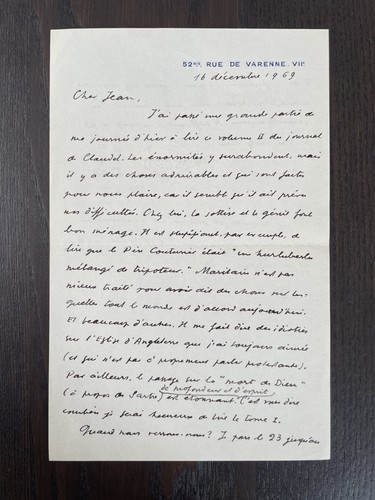 52BIS, RUE DE VARENNE. VIIE
16 décembre 1969
Cher Jean,
J'ai passé une grande partie de
ma journée d'hier à lire ce volume II du journal
de Claudel. Les énormités y surabondent, mais
il y a des choses admirables et qui sont faites
pour nous plaire, car il semble qu'il ait prévu
nos difficultés. Chez lui, la sottise et le génie font
bon ménage. Il est stupéfiant, par exemple, de
lire que le Père Couturier était "un hurluberlu
mélangé de tripoteur." Maritain n'est pas
mieux traité pour avoir dit des choses sur les-
quelles tout le monde est d'accord aujourd'hui.
Et beaucoup d'autres. Il me fait dire des idioties
sur l'Eglise d'Angleterre que j'ai toujours aimée
(et qui n'est pas à proprement parler protestante).
Par ailleurs, le passage sur la "mort de Dieu"
de profondeur et d'esprit
(à propos de Sartre) est étonnant. C'est vous dire
combien je serai heureux de lire le tome I.
Quand nous verrons-nous? Je pars le 23 jusqu'au